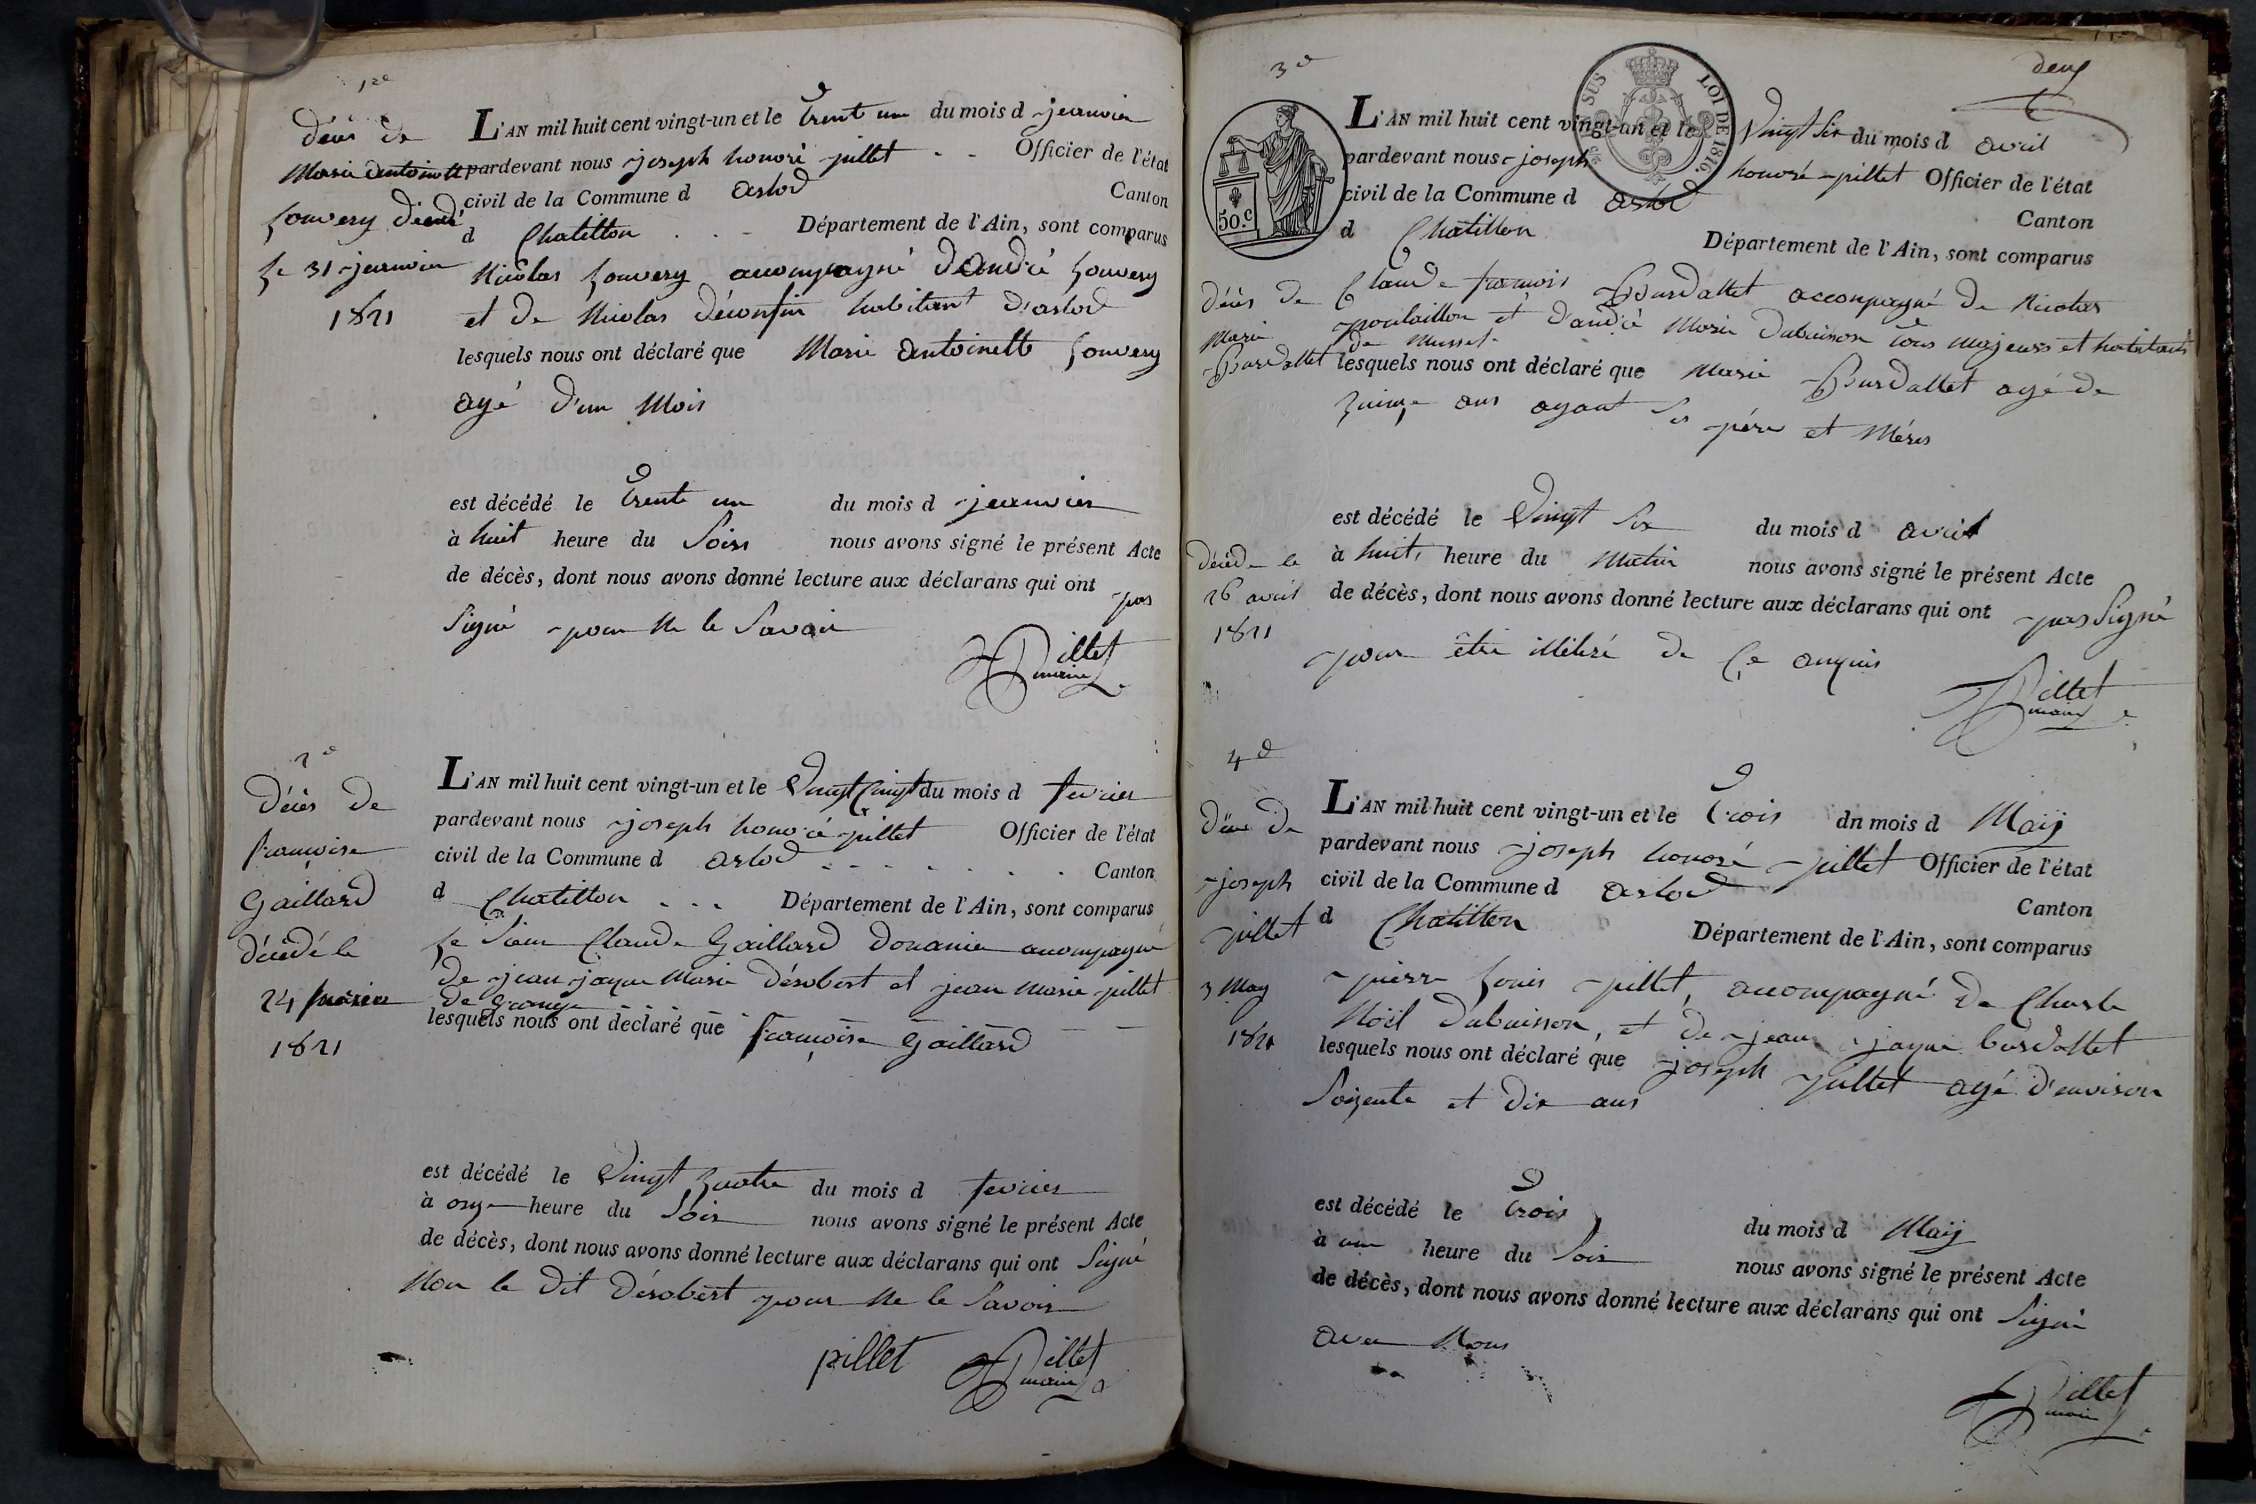 1re
décès de
Marie Antoinette
Louvery décédé
Le 31 jeanvier
1821
L'AN mil huit cent vingt-un et le Trent un du mois d jeanvier
pardevant nous joseph honoré pillet - - Officier de l'état
civil de la Commune d arlod Canton
d Chatillon . . - Département de l'Ain, sont comparus
Nicolas Louvery acompagné d'André Louvery
et de Nicolas déconfin habitant d'arlod
lesquels nous ont déclaré que Marie Antoinette Louvery
agé d'un Mois
est décédé le Trente un du mois d jeanvier
à huit heure du Soire nous avons signé le présent Acte
de décès, dont nous avons donné lecture aux déclarans qui ont pas
Signé pour Ne le Savoir
Pillet
maire
2e
Décès de
francoise
Gaillard
décédé le
24 fevrier
1821
L'AN mil huit cent vingt-un et le Vingt Cinqt du mois d fevrier
pardevant nous joseph honoré pillet Officier de l'état
civil de la Commune d arlod - - - - - - . Canton
d Chatillon . . . Département de l'Ain, sont comparus
Le Sieur Claude Gaillard Douanier acompagné
de jean jaque Marie Désobert et jean Marie pillet
de Grange - - -
lesquels nous ont declaré que françoise Gaillard
est décédé le Vingt quatre du mois d fevrier
à onze heure du Soir nous avons signé le présent Acte
de décès, dont nous avons donné lecture aux déclarans qui ont Signé
Non le Dit Désobert pour Ne le Savoir
pillet Pillet
maire
3e
deux
SUS LOI DE 1816.
50.c
décès de
Marie
Burdallet
décéde le
26 avril
1821
L'AN mil huit cent vingt-un et le Vingt Six du mois d avril
pardevant nous joseph honoré pillet Officier de l'état
civil de la Commune d arlod Canton
d Chatillon Département de l'Ain, sont comparus
Claude francois Burdallet accompagné de Nicolas
poulaillon et d'andré Marie Dubuisson tous majeurs et habitants
de Mussel
lesquels nous ont déclaré que Marie Burdallet agé de
quinze ans ayant Ses père et Mères
est décédé le Vingt Six du mois d avril
à huit heure du Matin nous avons signé le présent Acte
de décès, dont nous avons donné lecture aux déclarans qui ont pas Signé
pour être illitiré de Ce anquis
Pillet
maire
4e
décès de
joseph
pillet
3 May
1821
L'AN mil huit cent vingt-un et le Trois dn mois d Maij
pardevant nous joseph honoré pillet Officier de l'état
civil de la Commune d arlod Canton
d Chatillon Département de l'Ain, sont comparus
pierre Louis pillet, acompagné de Charle
Noël Dubuisson, et de jean jaque burdallet
lesquels nous ont déclaré que joseph pillet agé d'environ
Soizente et Dix ans
est décédé le Trois du mois d Maij
à une heure du Soir nous avons signé le présent Acte
de décès, dont nous avons donné lecture aux déclarans qui ont Signé
avec Nous
Pillet
maire